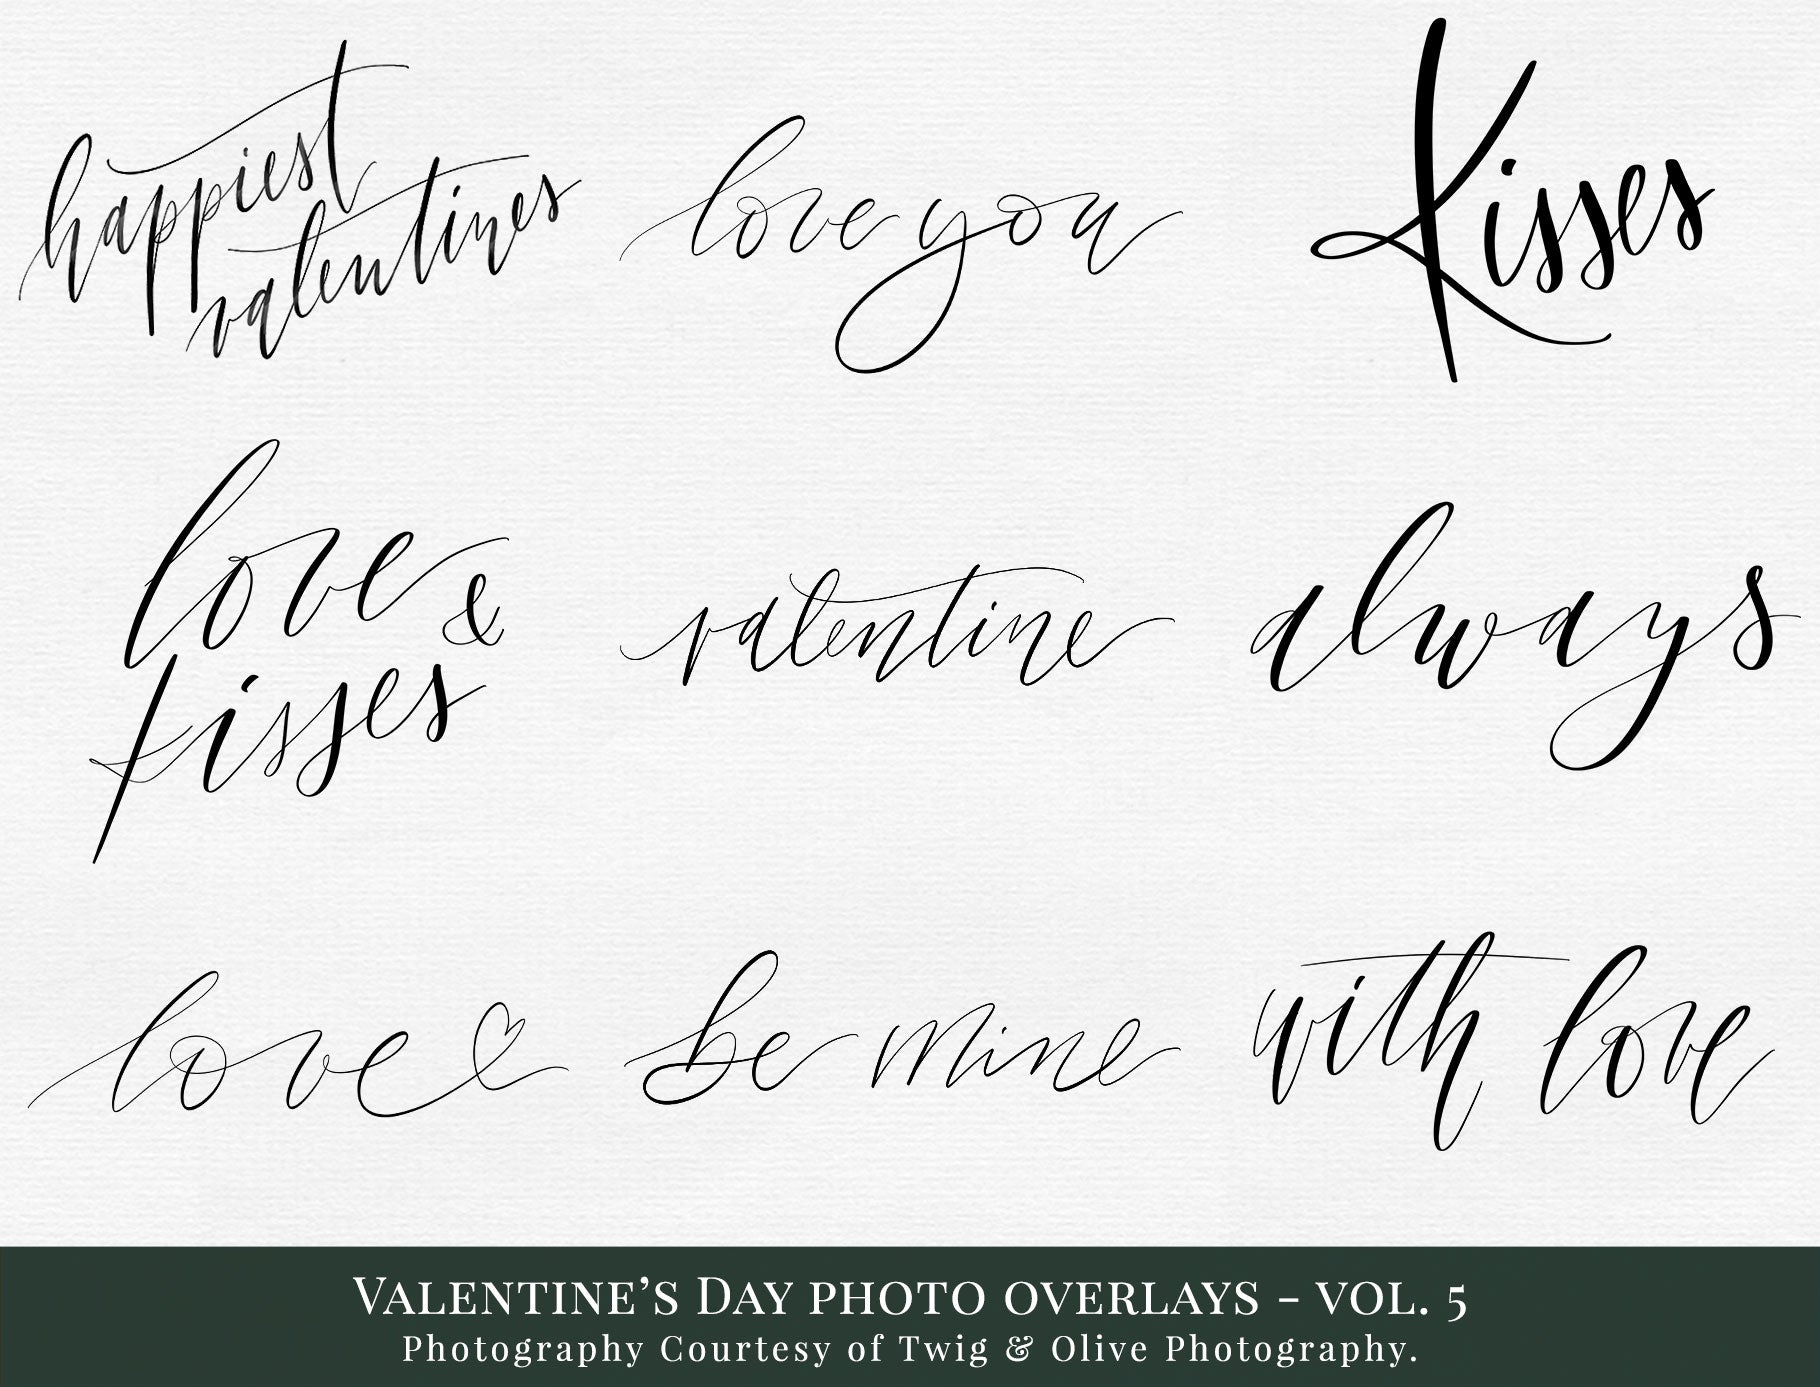 happiest
valentines
love you
Kisses
love &
kisses
valentine
always
love
be mine
with love
Valentine's Day photo overlays - vol. 5
Photography Courtesy of Twig & Olive Photography.